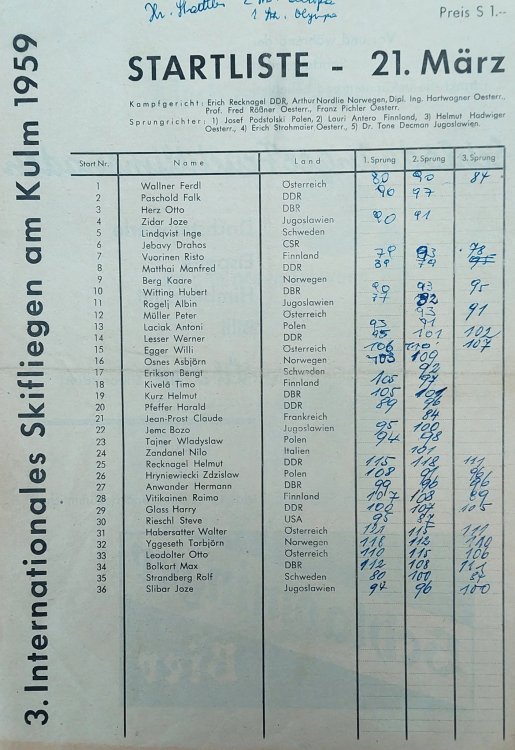 3. Internationales Skifliegen am Kulm 1959
Preis S 1.--
STARTLISTE - 21. März
Kampfgericht: Erich Recknagel DDR, Arthur Nordlie Norwegen, Dipl. Ing. Hartwagner Oesterr.,
Prof. Fred Rößner Oesterr., Franz Pichler Oesterr.
Sprungrichter: 1) Josef Podstolski Polen, 2) Lauri Antero Finnland, 3) Helmut Hadwiger
Oesterr., 4) Erich Strahmaier Oesterr., 5) Dr. Tone Decman Jugoslawien.
Start Nr. Name Land 1. Sprung 2. Sprung 3. Sprung
1 Wallner Ferdl Österreich 80 90 84
2 Paschold Falk DDR 90 97
3 Herz Otto DBR
4 Zidar Joze Jugoslawien 90 91
5 Lindqvist Inge Schweden
6 Jebavy Drahos CSR
7 Vuorinen Risto Finnland 79 93 78
8 Matthai Manfred DDR
9 Berg Kaare Norwegen
10 Witting Hubert DBR 90 93 95
11 Rogelj Albin Jugoslawien 77 82
12 Müller Peter Österreich 93 91
13 Laciak Antoni Polen 93 91
14 Lesser Werner DDR 95 101 102
15 Egger Willi Österreich 106 110 107
16 Osnes Asbjörn Norwegen 103 109
17 Erikson Bengt Schweden 92
18 Kivelä Timo Finnland 105 97
19 Kurz Helmut DBR 105 101
20 Pfeffer Harald DDR 89 96
21 Jean-Prost Claude Frankreich 84
22 Jemc Bozo Jugoslawien 95 100
23 Tajner Wladyslaw Polen 94 98
24 Zandanel Nilo Italien 101
25 Recknagel Helmut DDR 115 118 111
26 Hryniewiecki Zdzislaw Polen 108 91 96
27 Anwander Hermann DBR 99 96 96
28 Vitikainen Raimo Finnland 107 108 89
29 Glass Harry DDR 102 107 105
30 Rieschl Steve USA 95 87
31 Habersatter Walter Österreich 121 115 111
32 Yggeseth Torbjörn Norwegen 118 112 110
33 Leodolter Otto Österreich 110 115 106
34 Bolkart Max DBR 112 108 111
35 Strandberg Rolf Schweden 80 100 87
36 Slibar Joze Jugoslawien 94 96 100